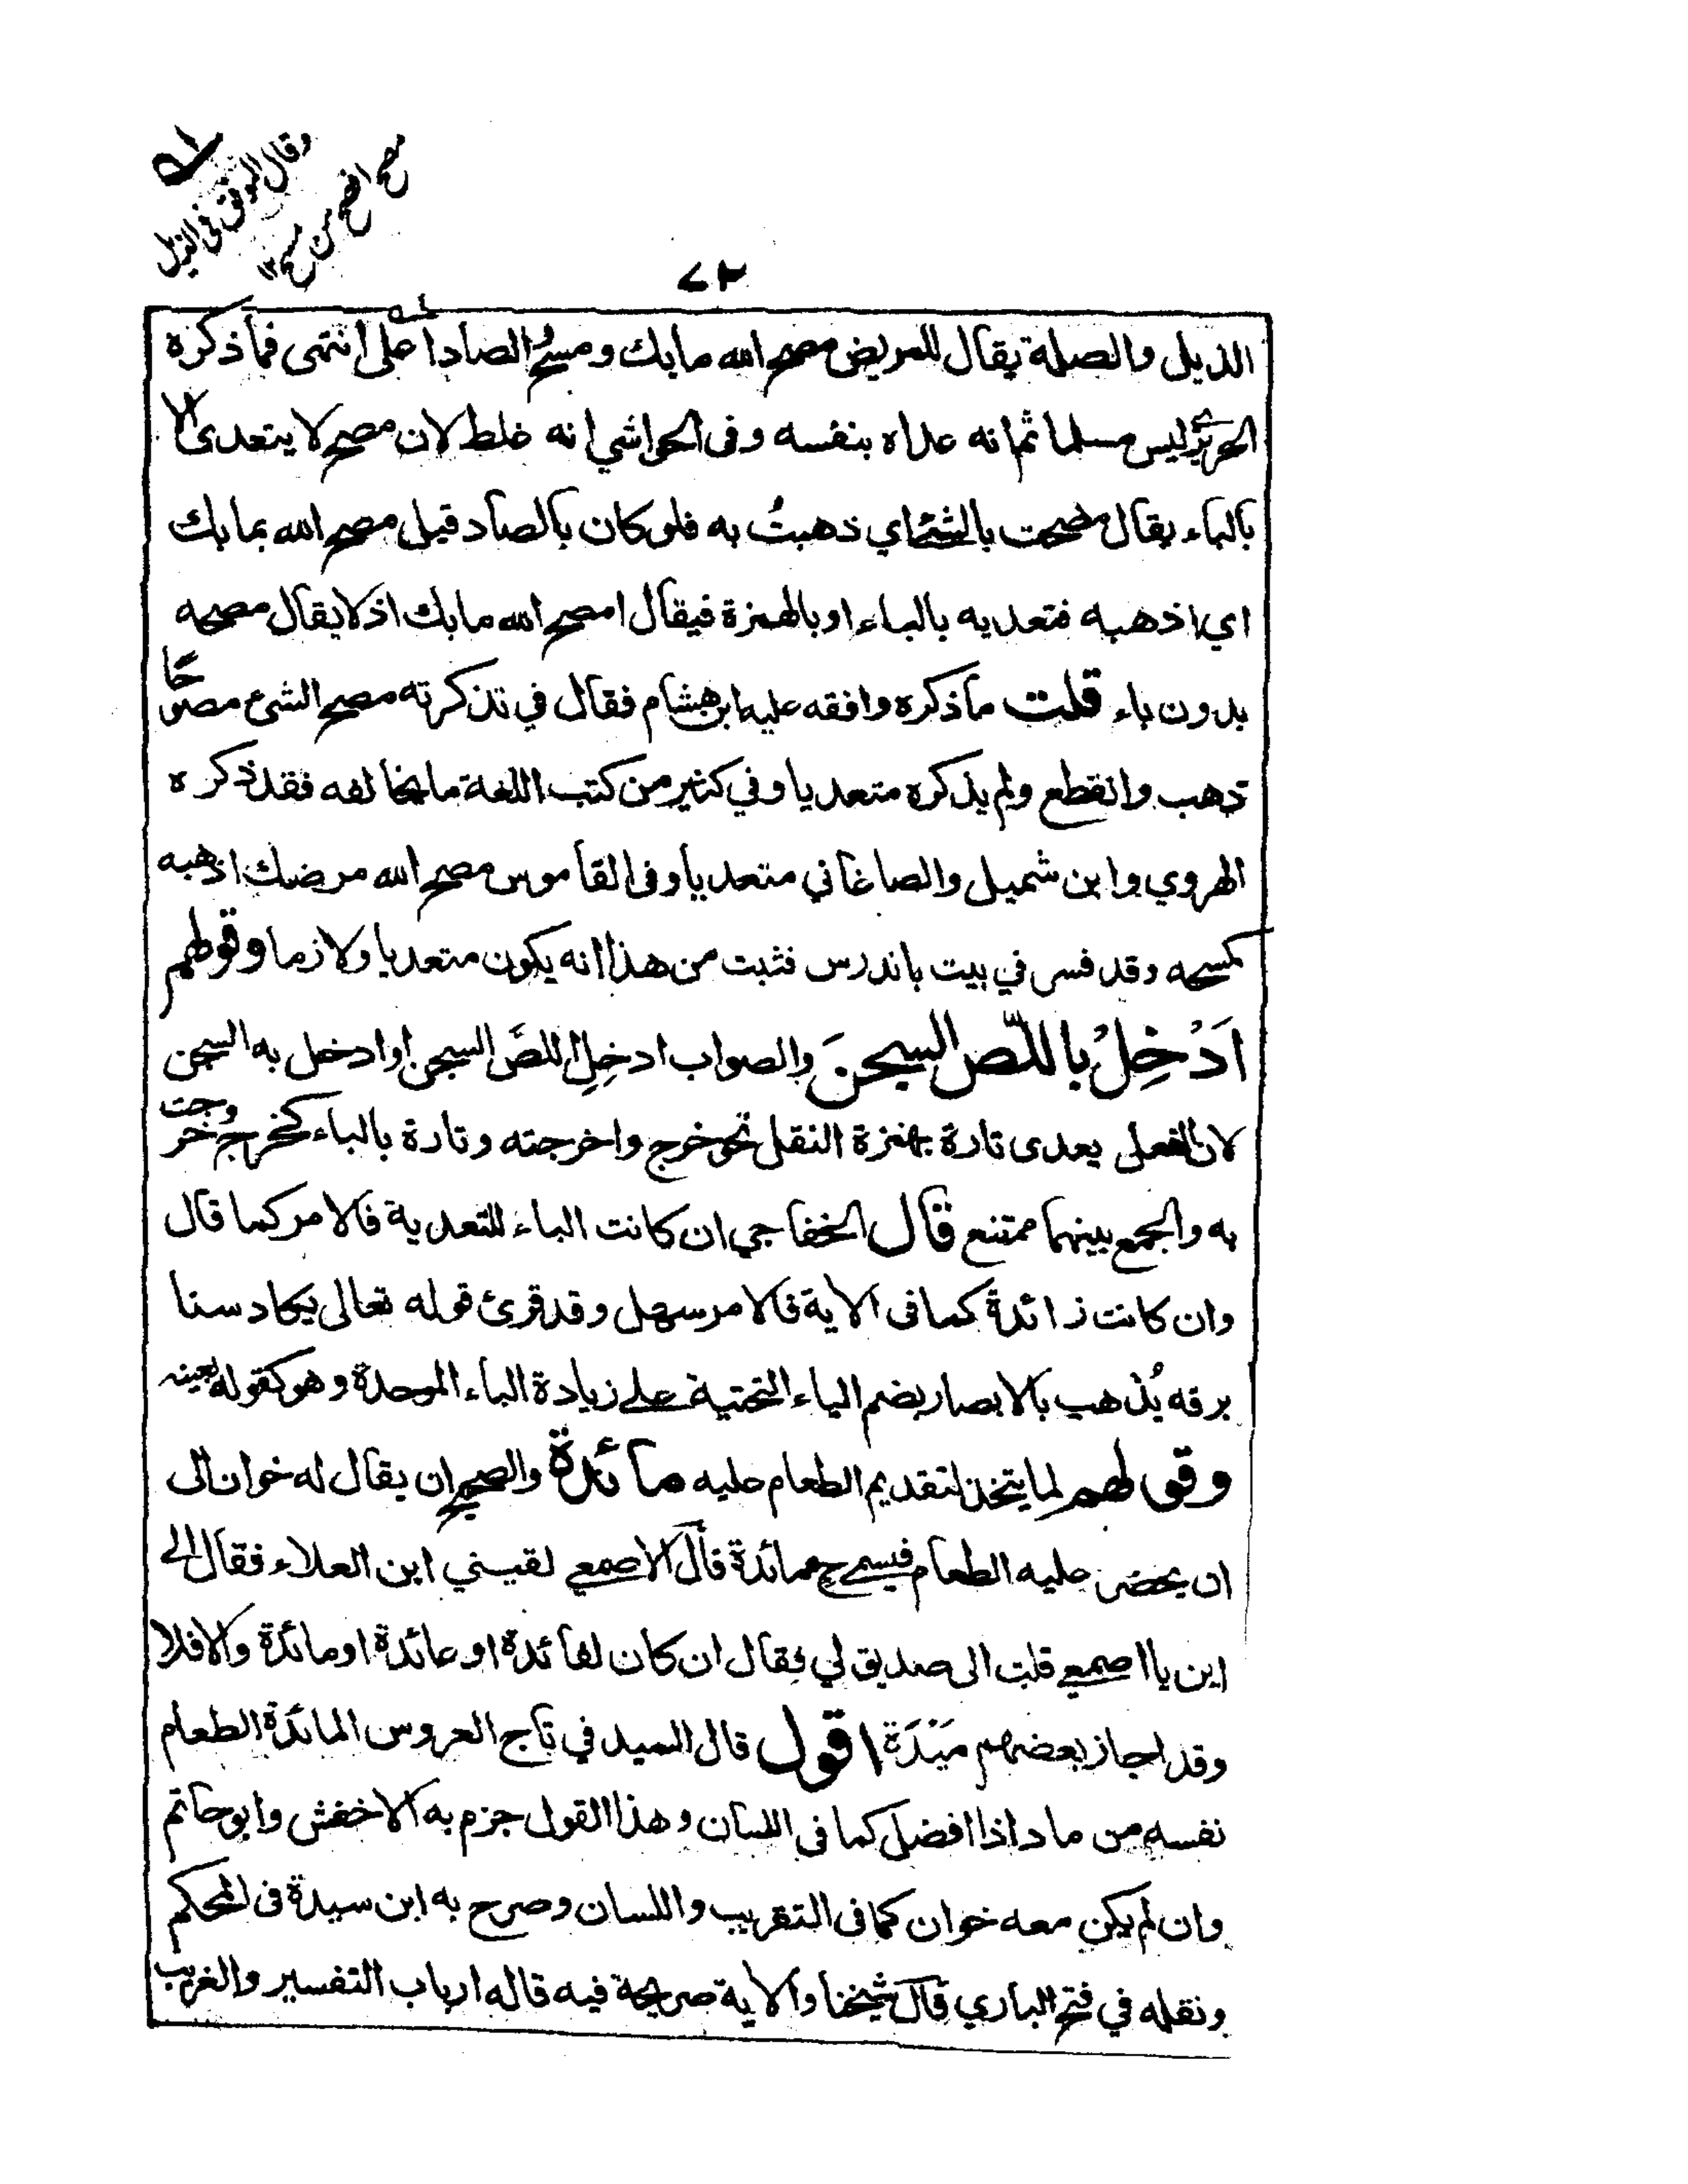 وقال الموفق في الذيل
مصح افصح من مسح ١٢
٧٢
الذيل والصلة يقال للمريض مصح الله مابك ومسح الصاد اعلى انتهى فما ذكره
الحريري ليس مسلما ثم انه عداه بنفسه وفى الحواشي انه غلط لان مصح لا يتعدى الا
بالباء يقال مصحت بالشئ اي ذهبتُ به فلو كان بالصاد قيل مصح الله بمابك
اي اذهبه فتعديه بالباء او بالهمزة فيقال امصح الله مابك اذ لا يقال مصحه
بدون باء قلت ما ذكره وافقه عليه ابن هشام فقال في تذكرته مصح الشئ مصوحًا
ذهب وانقطع ولم يذكره متعديا وفي كثير من كتب اللغة ما يخالفه فقد ذكره
الهروي وابن شميل والصاغاني متعديا وفى القاموس مصح الله مرضك اذهبه
كمسحه وقد فسر في بيت باندرس فثبت من هذا انه يكون متعديا ولازما وقولهم
اَدْخِلْ باللّص السجنَ والصواب ادخِلِ اللصَ السجن او ادخل به السجن
لان الفعل يعدى تارة بهمزة النقل نحو خرج واخرجته وتارة بالباء كخرج وخرجت
به والجمع بينهما ممتنع قال الخفاجي ان كانت الباء للتعدية فالامر كما قال
وان كانت زائدة كما فى الاية فالامر سهل وقد قرئ قوله تعالى يكاد سنا
برقه يُذهب بالابصار بضم الياء التحتية على زيادة الباء الموحدة وهو كقوله بعينه
وقولهم لما يتخذ لتقديم الطعام عليه مائدة والصحيح ان يقال له خوان الى
ان يحضر عليه الطعام فيسمى ح مائدة قال الاصمعي لقيني ابن العلاء فقال الى
اين يا اصمعي قلت الى صديق لي فقال ان كان لفائدة او عائدة او مائدة والا فلا
وقد اجاز بعضهم مَيْدَة اقول قال السيد في تاج العروس المائدة الطعام
نفسه من ماد اذا افضل كما فى اللسان وهذا القول جزم به الاخفش وابو حاتم
وان لم يكن معه خوان كما فى التقريب واللسان وصرح به ابن سيدة فى المحكم
ونقله في فتح الباري قال شيخنا والاية صريحة فيه قاله ارباب التفسير والغريب